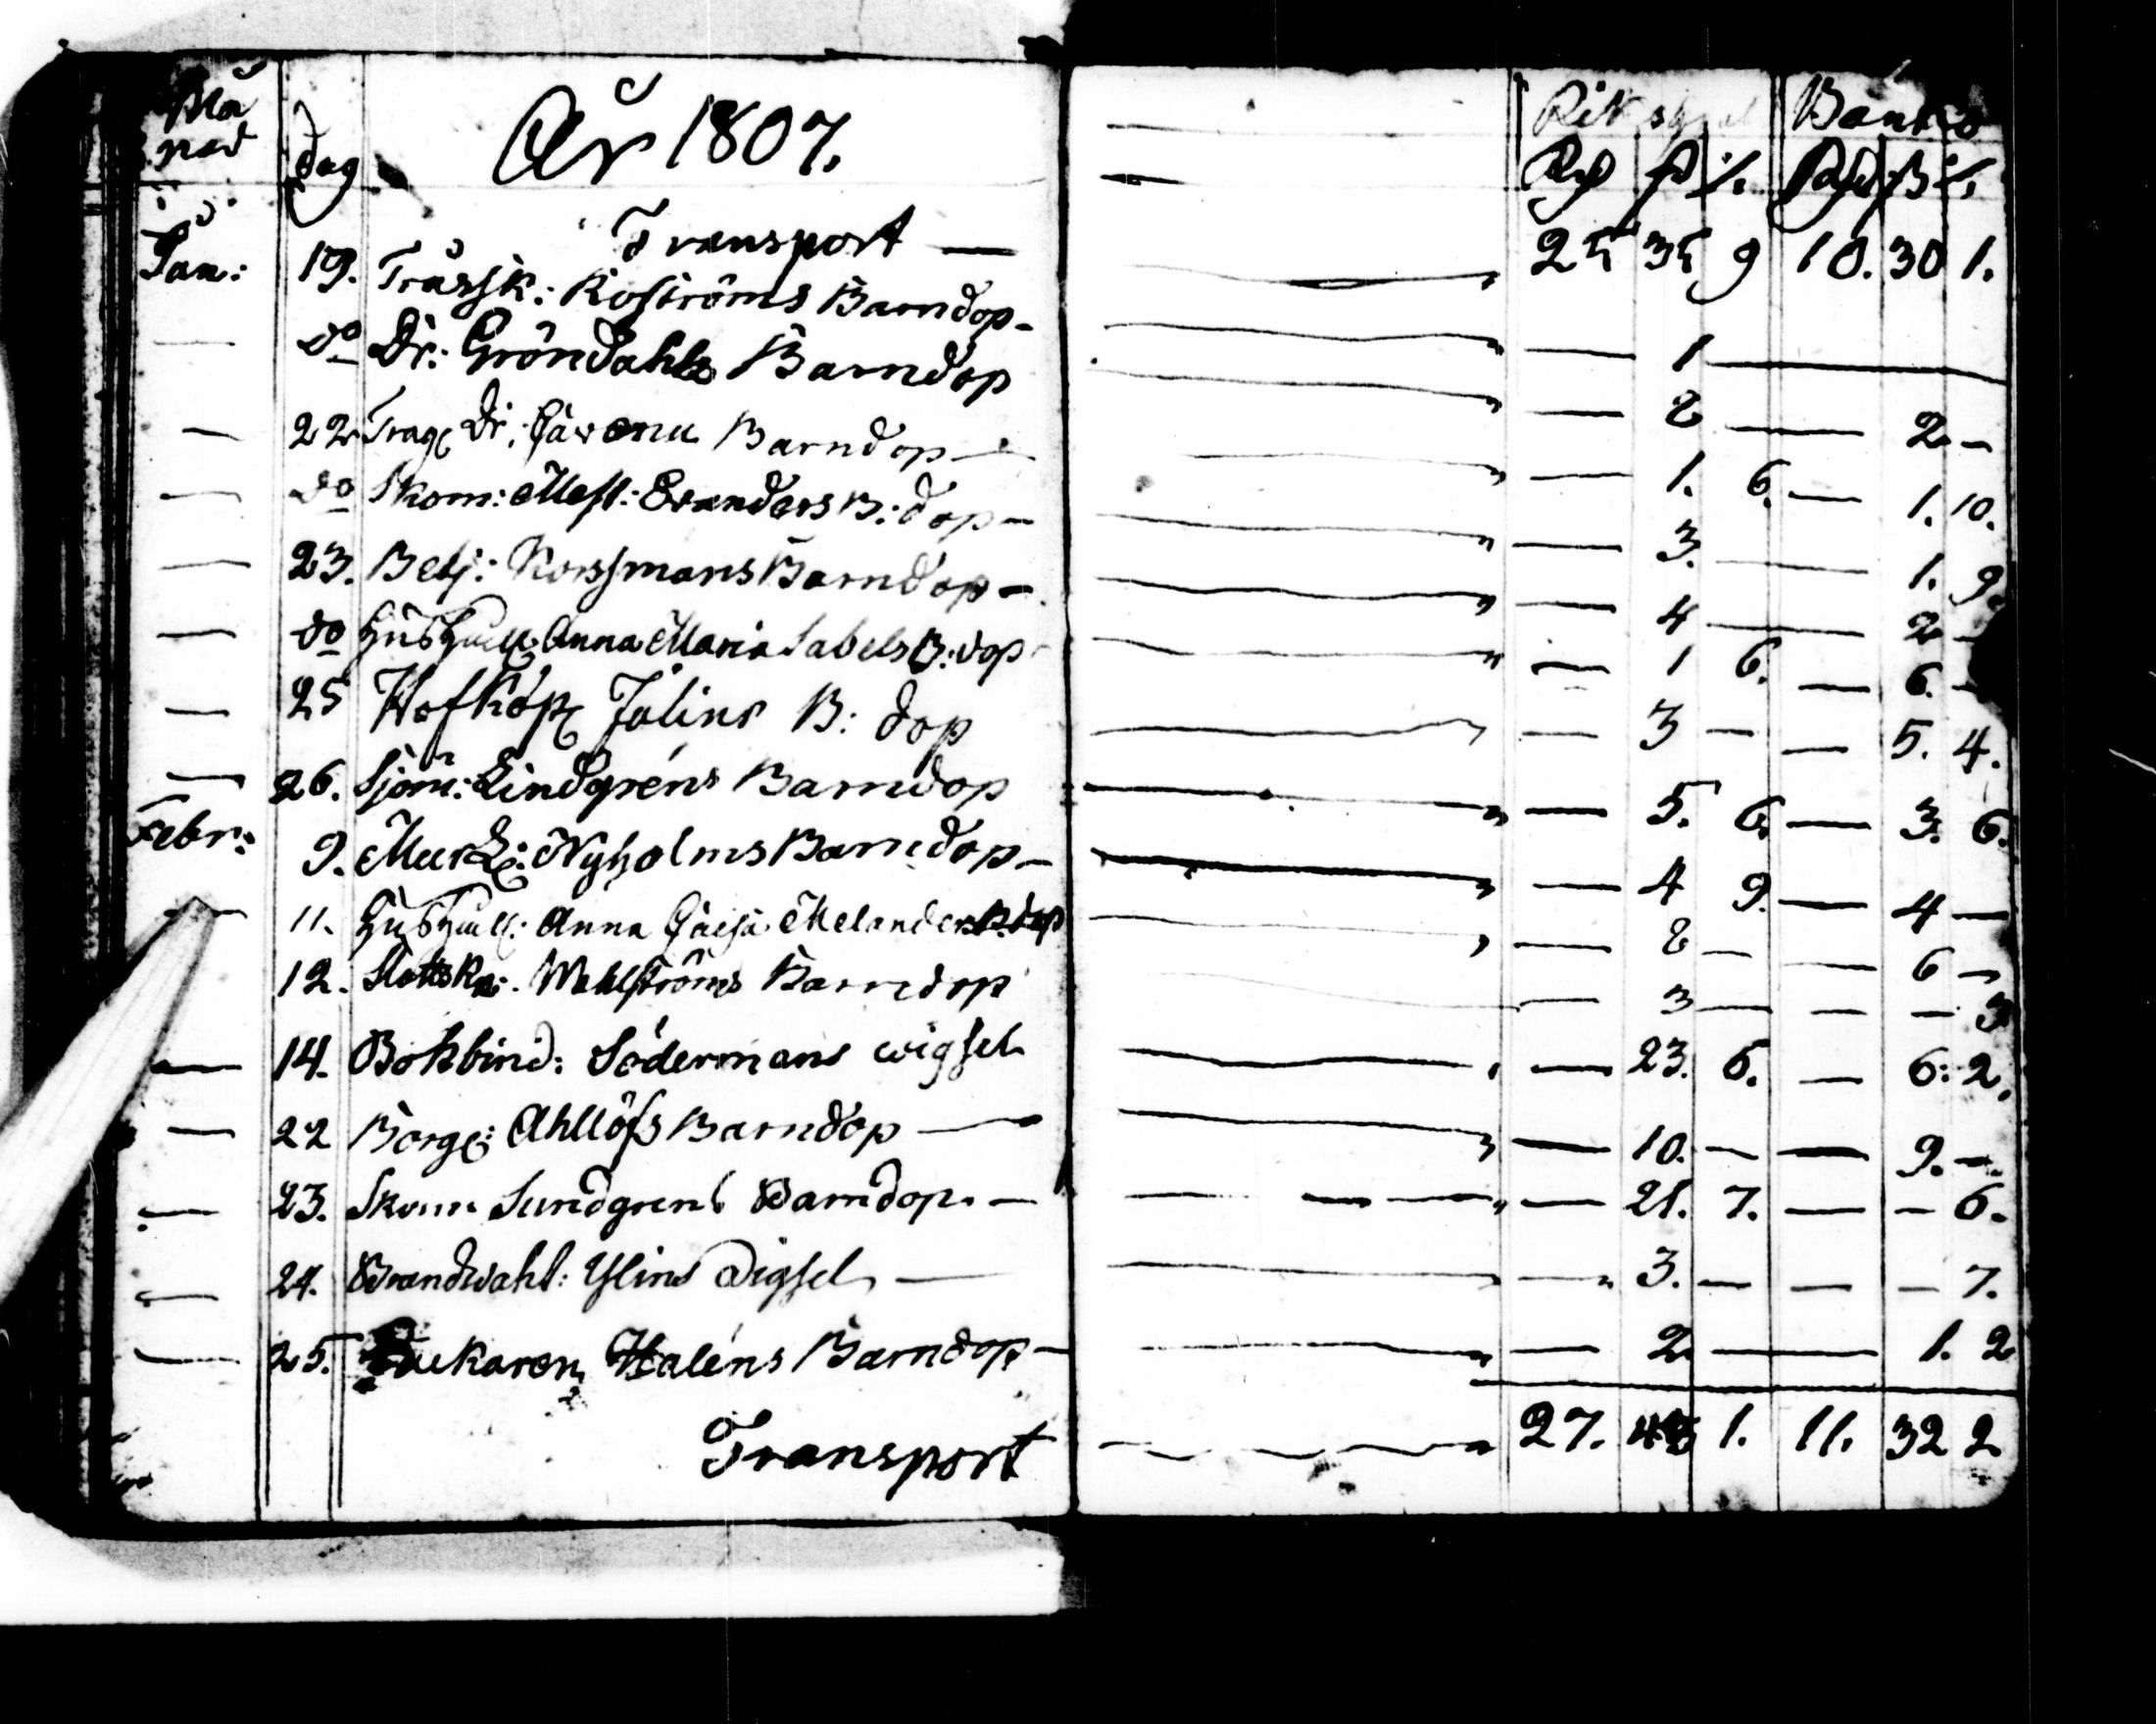 Må
nad dag År 1807. Riksgäl Banco
Rd ß /. Rd ß /.
Transport — 25 35 9 10. 30 1.
Jan: 19. Barndop — 1
— do Dr: Gröndahls Barndop — 8 — 2 —
— 22 Dr: Barndop — 1. 6. — 1. 10.
— do Skom: Mest: Evanders B: dop — 3. — 1. 9.
— 23. Barndop — 4 — 2 —
— do Anna Maria Sabels B: dop — 1 6. — 6. —
— 25 Hofköp B: dop — 3 — — 5. 4.
— 26. Sjöm: Lindgrens Barndop — 5. 6. — 3. 6.
Febr: 9. Nyholms Barndop — 4 9. — 4 —
— 11. Anna Cajsa Melanders B: dop — 8 — — 6 —
12. Wahlströms Barndop — 3 — — — 3
— 14. Bokbind: Södermans wigsel — 23. 6. — 6: 2.
— 22 Borg: Ahllöfs Barndop — 10. — — 9. —
— 23. Skom Sundgrens Barndop. — 21. 7. — — 6.
— 24. Brandwakt: Ylins Vigsel — 3. — — — 7.
— 25. Haléns Barndop — 2 — 1. 2
Transport — 27. 43 1. 11. 32 2